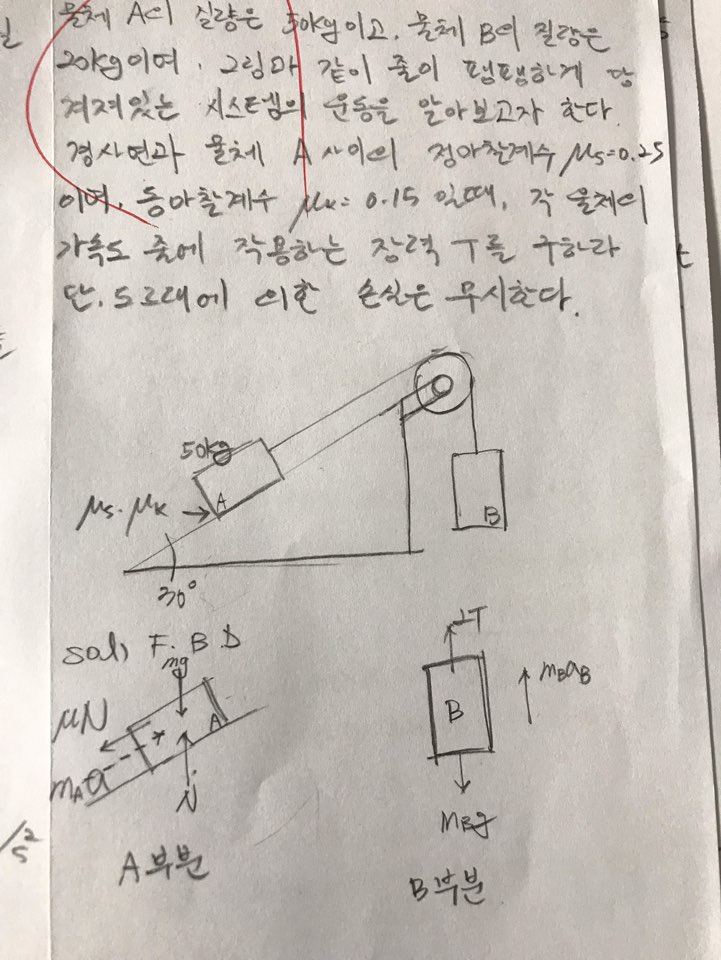 물체 A의 질량은 50kg이고, 물체 B의 질량은
20kg이며, 그림과 같이 줄이 팽팽하게 당
겨져있는 시스템의 운동을 알아보고자 한다.
경사면과 물체 A 사이의 정마찰계수 μs=0.25
이며, 동마찰계수 μk=0.15 일때, 각 물체의
가속도 줄에 작용하는 장력 T를 구하라
단, 도르래에 의한 손실은 무시한다.
50kg
A
μs. μk
B
30°
sol) F. B. D
mg
μN
A
mAa
N
A 부분
2T
mBaB
B
mBg
B 부분
/s²